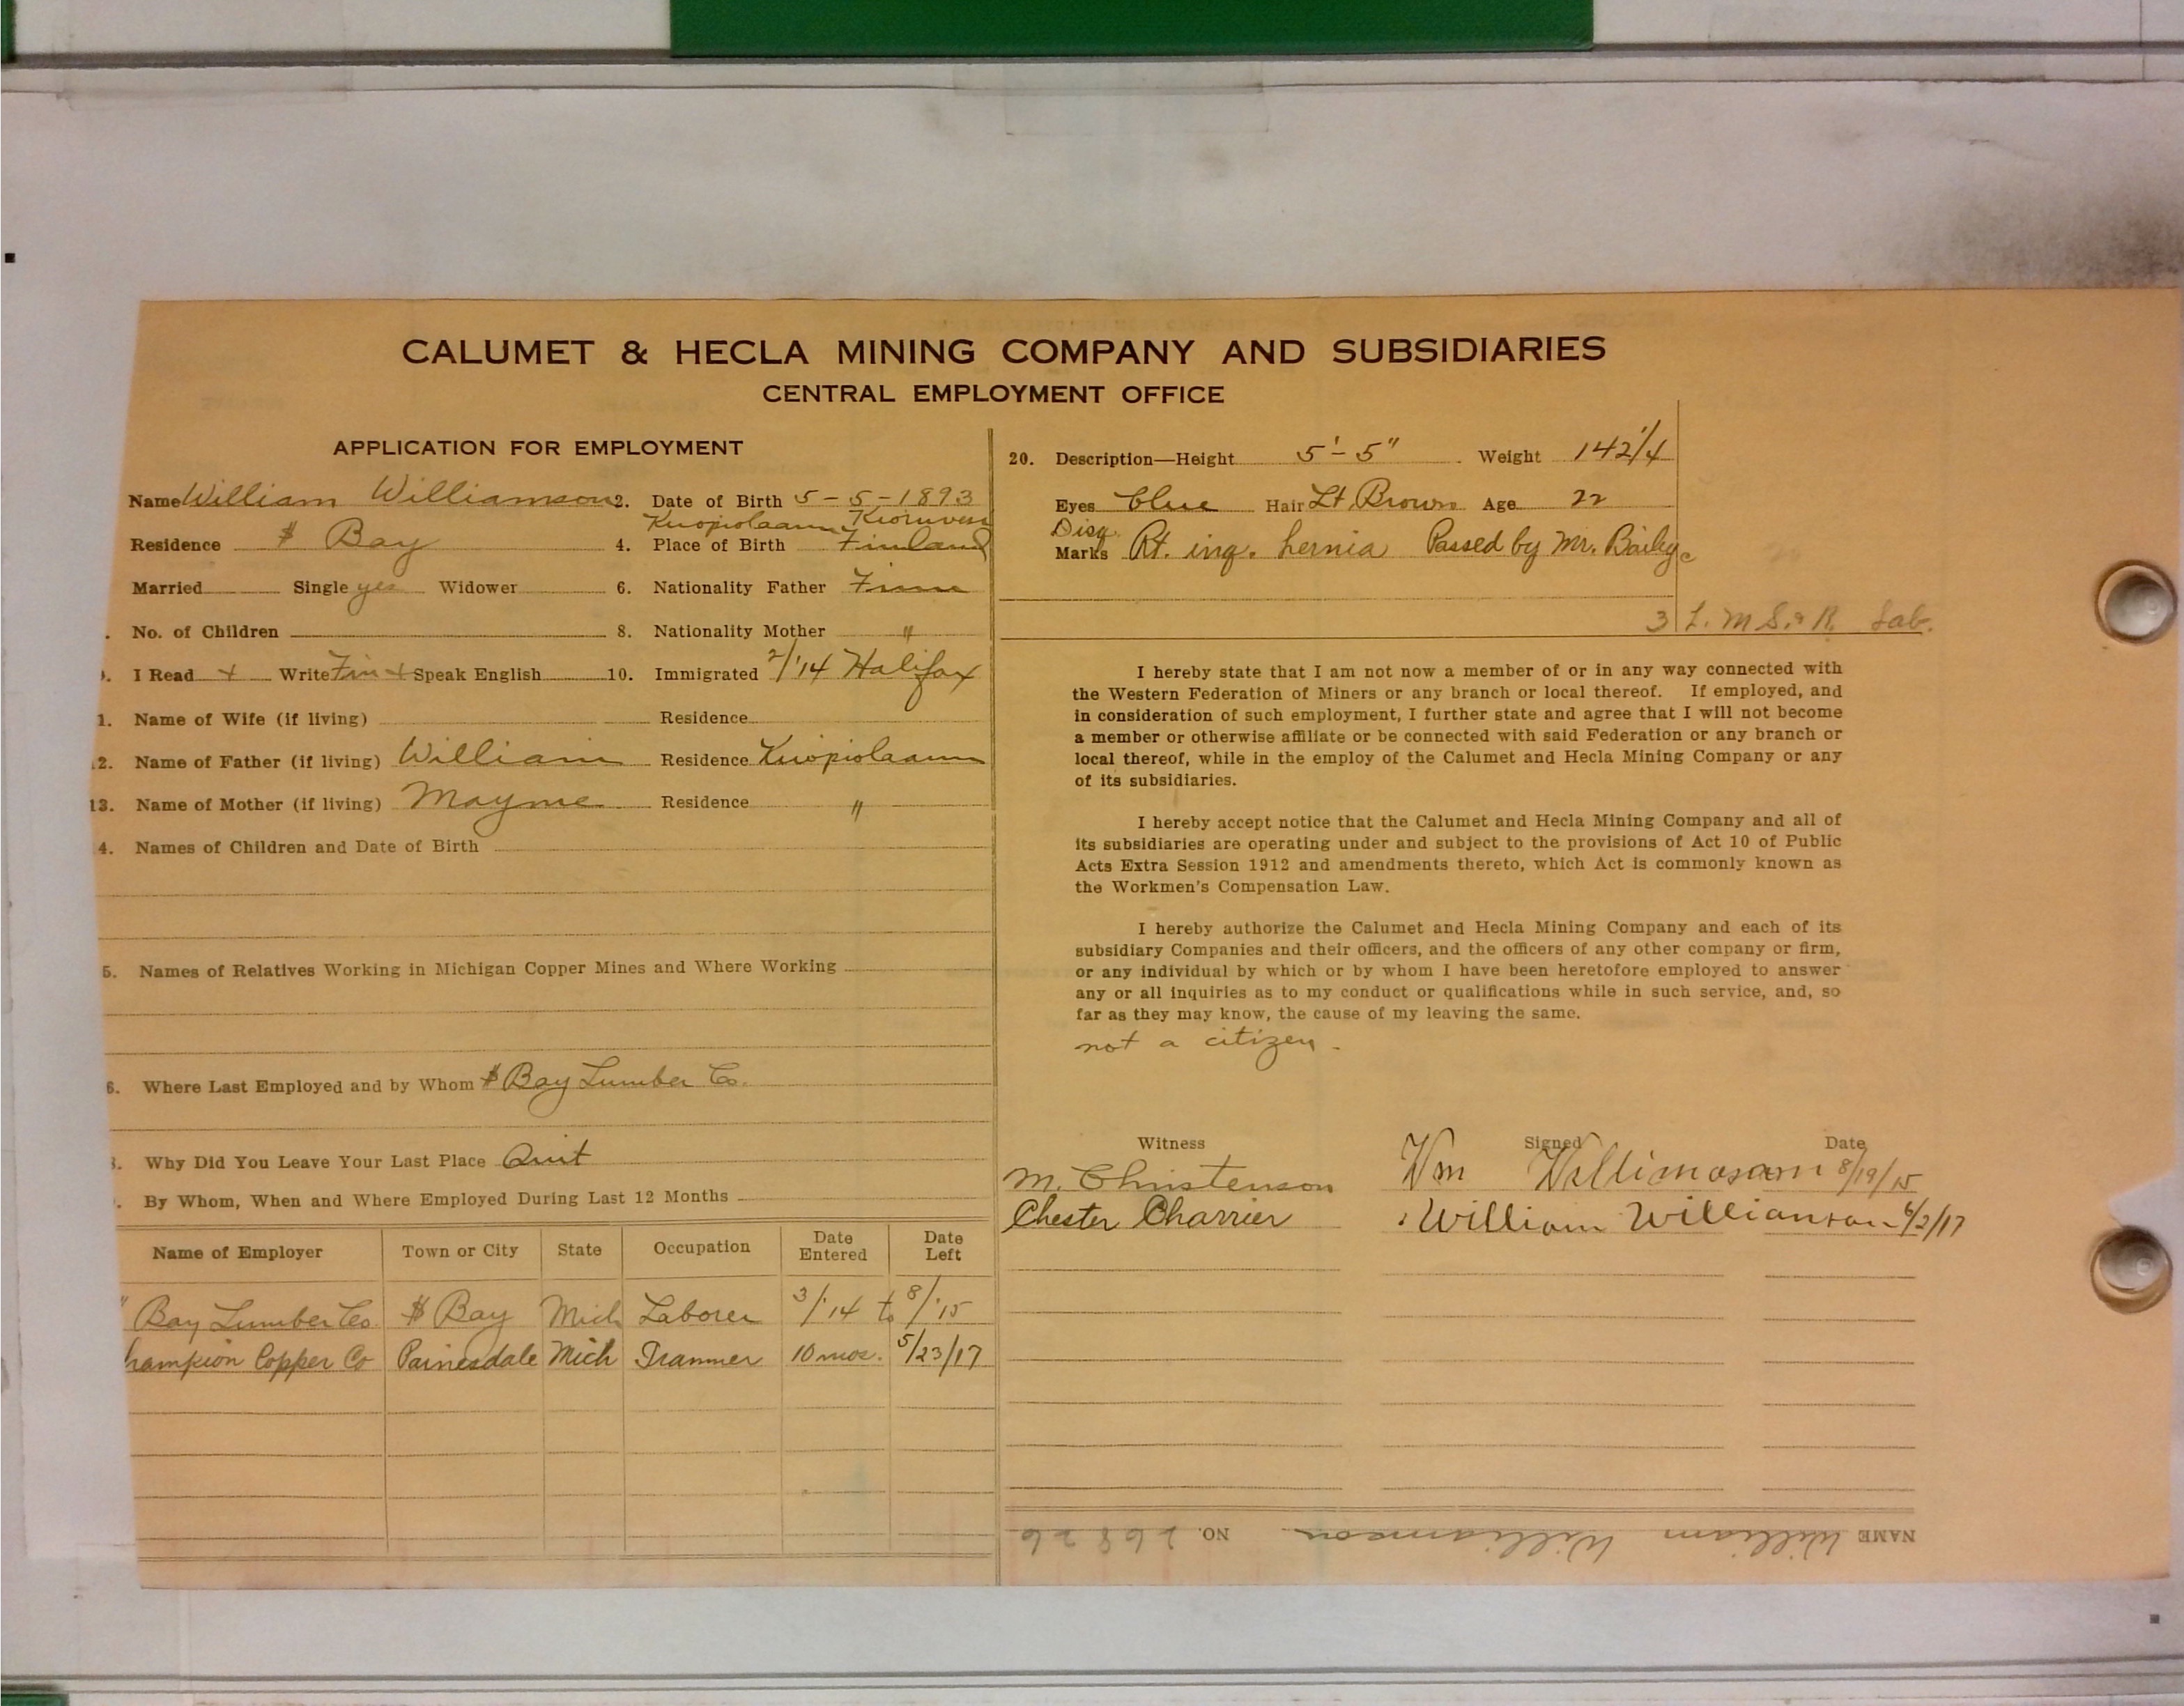 CALUMET & HECLA MINING COMPANY AND SUBSIDIARIES
CENTRAL EMPLOYMENT OFFICE
APPLICATION FOR EMPLOYMENT
Name William Williamson 2. Date of Birth 5-5-1893
Kuopiolaann
Residence $ Bay 4. Place of Birth Finland
Married Single yes Widower 6. Nationality Father Finn
. No. of Children 8. Nationality Mother "
. I Read + Write Fin + Speak English 10. Immigrated 2/'14 Halifax
1. Name of Wife (if living) Residence
2. Name of Father (if living) William Residence Kuopiolaann
13. Name of Mother (if living) Mayme Residence "
4. Names of Children and Date of Birth
5. Names of Relatives Working in Michigan Copper Mines and Where Working
6. Where Last Employed and by Whom $ Bay Lumber Co.
. Why Did You Leave Your Last Place Quit
. By Whom, When and Where Employed During Last 12 Months
Name of Employer Town or City State Occupation Date Entered Date Left
" Bay Lumber Co. $ Bay Mich Laborer 3/'14 to 8/'15
hampion Copper Co Painesdale Mich Trammer 10 mos. 5/23/17
20. Description—Height 5'-5" Weight 142 1/4
Eyes blue Hair Lt. Brown Age 22
Disq.
Marks Rt. ing. hernia Passed by Mr. Baily
3 L. M S. & R. Lab.
I hereby state that I am not now a member of or in any way connected with
the Western Federation of Miners or any branch or local thereof. If employed, and
in consideration of such employment, I further state and agree that I will not become
a member or otherwise affiliate or be connected with said Federation or any branch or
local thereof, while in the employ of the Calumet and Hecla Mining Company or any
of its subsidiaries.
I hereby accept notice that the Calumet and Hecla Mining Company and all of
its subsidiaries are operating under and subject to the provisions of Act 10 of Public
Acts Extra Session 1912 and amendments thereto, which Act is commonly known as
the Workmen's Compensation Law.
I hereby authorize the Calumet and Hecla Mining Company and each of its
subsidiary Companies and their officers, and the officers of any other company or firm,
or any individual by which or by whom I have been heretofore employed to answer
any or all inquiries as to my conduct or qualifications while in such service, and, so
far as they may know, the cause of my leaving the same.
not a citizen.
Witness Signed Date
M. Christenson Wm Willimosam 8/19/15
Chester Charrier William Willianson 6/2/17
NAME William Williamson NO. 26826